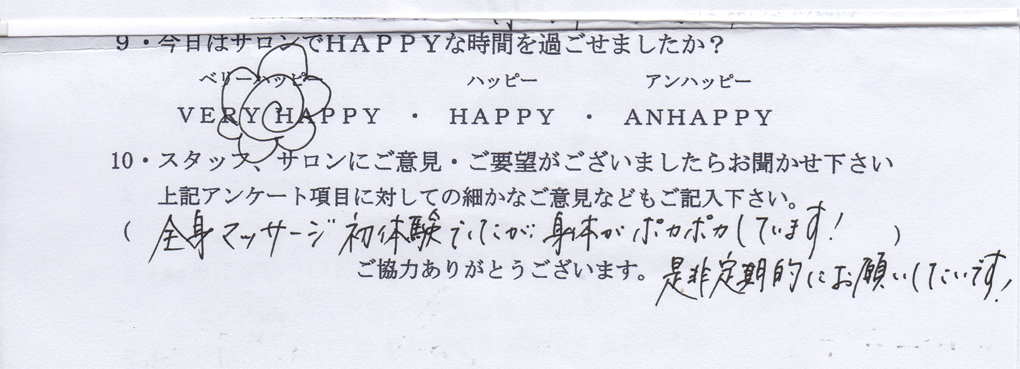 9・今日はサロンでHAPPYな時間を過ごせましたか?
ベリーハッピー ハッピー アンハッピー
VERY HAPPY ・ HAPPY ・ ANHAPPY
10・スタッフ、サロンにご意見・ご要望がございましたらお聞かせ下さい
上記アンケート項目に対しての細かなご意見などもご記入下さい。
( 全身マッサージ初体験でしたが、身体がポカポカしています! )
ご協力ありがとうございます。
是非定期的にお願いしたいです!